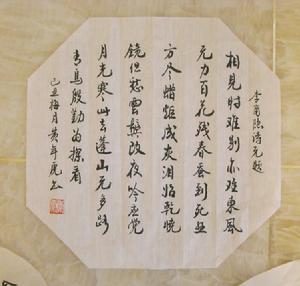 李商隐诗无题
相見时難别亦难東風
无力百花残春蚕到死丝
方尽蜡炬成灰泪始乾曉
镜但愁雲鬓改夜吟应觉
月光寒此去蓬山无多路
青鸟殷勤为探看
己丑梅月黄年